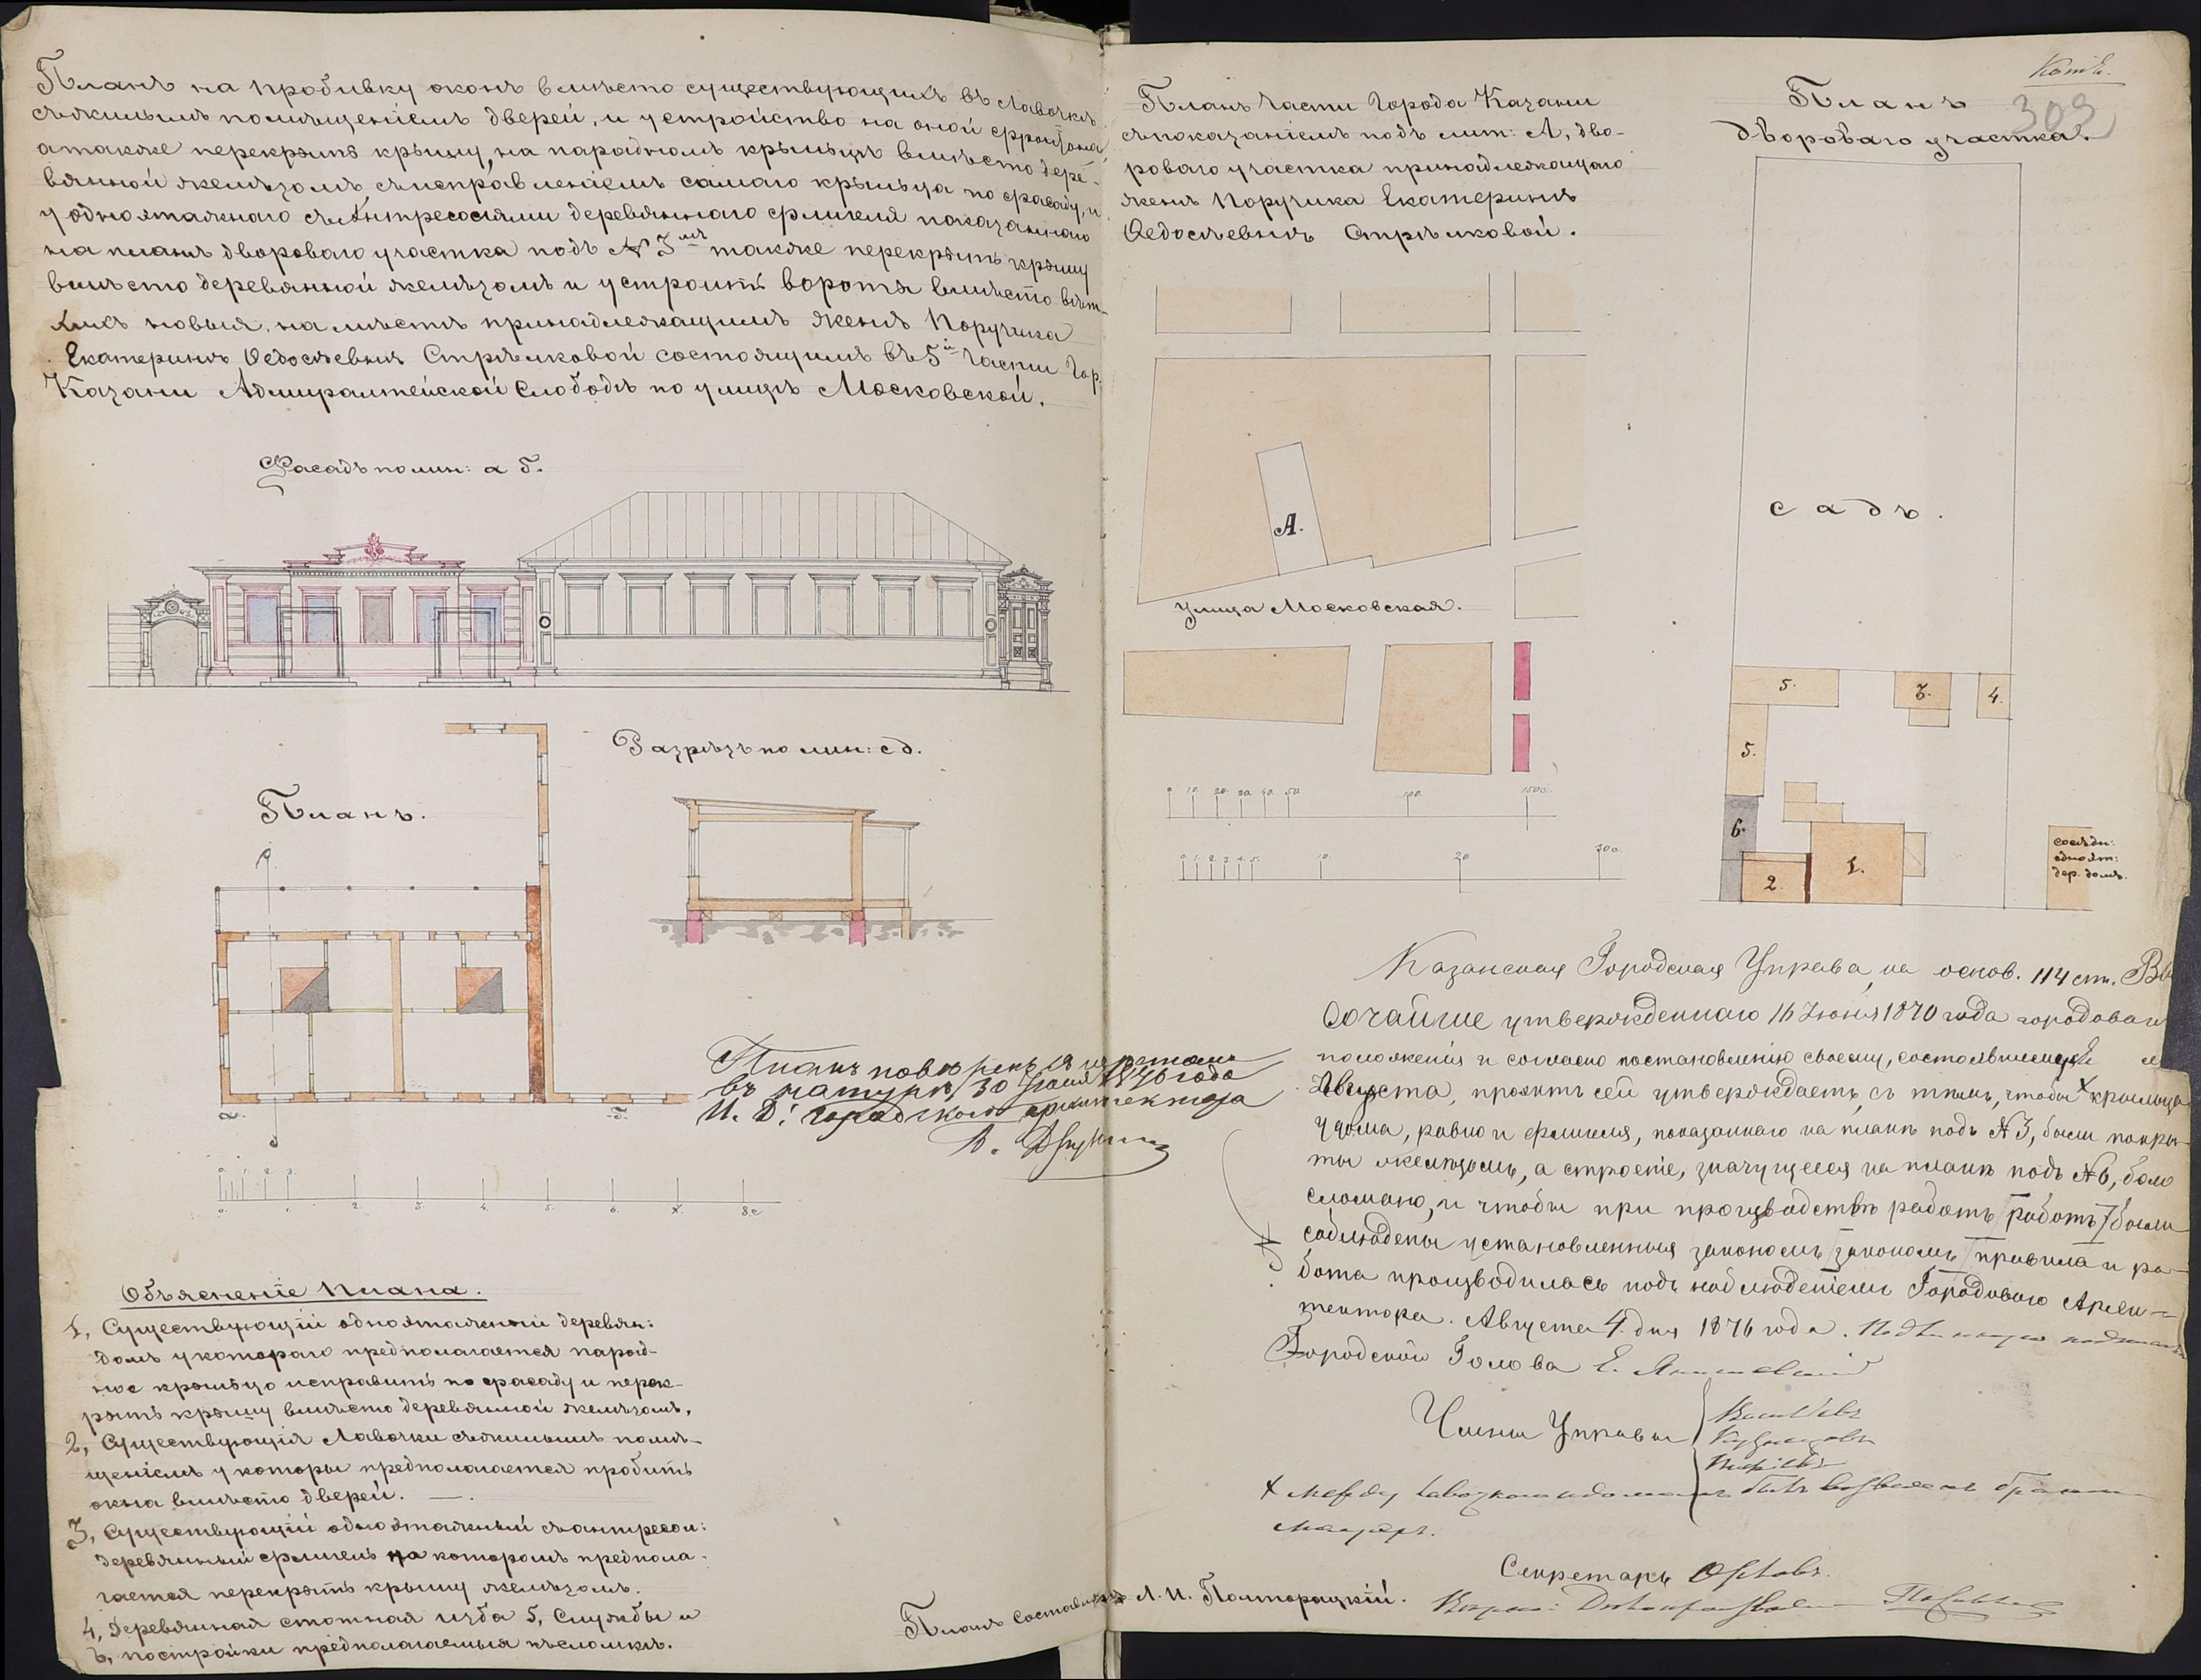 Планъ на пробивку оконъ вмѣсто существующихъ въ лавочкѣ
съ жилымъ помѣщеніемъ дверей, и устройство на оной фронтона
а также перекрыть крышу, на парадномъ крыльцѣ вмѣсто дере-
вянной желѣзомъ съ исправленіемъ самаго крыльца по фасаду, и
у одноэтажнаго съ Антресолями деревяннаго флигеля показаннаго
на планѣ двороваго участка подъ № 3мъ также перекрыть крышу
вмѣсто деревянной желѣзомъ и устроить ворота вмѣсто вѣт-
хихъ новыя, на мѣстѣ принадлежащимъ женѣ Поручика
Екатеринѣ Ѳедосѣевнѣ Стрѣлковой состоящимъ въ 5й части Гор.
Казани Адмиралтейской Слободѣ по улицѣ Московской.
Фасадъ по лин: а б.
Планъ.
Разрѣзъ по лин: с д.
а.
б.
0. 1. 2. 3.
0. 1. 2. 3. 4. 5. 6. 7. 8 с
Планъ повѣренъ
въ натурѣ 30 1876 года
И. Д. городскаго архитектора
Объясненіе Плана.
1, Существующій одноэтажный деревян:
домъ у котораго предполагается парад-
ное крыльцо исправить по фасаду и перек-
рыть крышу вмѣсто деревянной желѣзомъ,
2, Существующія Лавочки съ жилымъ помѣ-
щеніемъ у которы предполагается пробить
окна вмѣсто дверей.
3, Существующій одноэтажный съ антресол:
деревянный флигель на которомъ предпола-
гается перекрыть крышу желѣзомъ.
4, Деревянная изба 5, Службы и
6, постройки предполагаемыя къ сломкѣ.
Планъ составлялъ Л. И. Полторацкій.
Планъ части Города Казани
съ показаніемъ подъ лит: А, дво-
роваго участка принадлежащаго
женѣ Поручика Екатеринѣ
Ѳедосѣевнѣ Стрѣлковой.
А.
улица Московская.
0 10. 20. 30. 40. 50. 100. 150 с.
0. 1. 2. 3. 4. 5. 10. 20. 30 с.
Копія.
309
Планъ
двороваго участка.
садъ.
5.
3.
4.
5.
6.
2.
1.
сосѣдн:
одноэт:
дер. домъ.
Казанская Городская Управа, на основ. 114 ст. Вы-
сочайше утвержденнаго 16 Іюня 1870 года городоваго
положенія и согласно постановленію своему, состоявшемуся
Августа, проэктъ сей утверждаетъ, съ тѣмъ, чтобы х крыльца
у дома, равно и флигеля, показаннаго на планѣ подъ № 3, были покры-
ты желѣзомъ, а строеніе, значущееся на планѣ подъ № 6, было
сломано, и чтобы при производствѣ работъ работъ были
соблюдены установленныя закономъ закономъ правила и ра-
бота производилась подъ наблюденіемъ Городоваго Архи-
тектора. Августа 4 дня 1876 года.
Городской Голова Е. Янишевскій
Члены Управы
х между лавочкою и домомъ былъ возведенъ
Секретарь